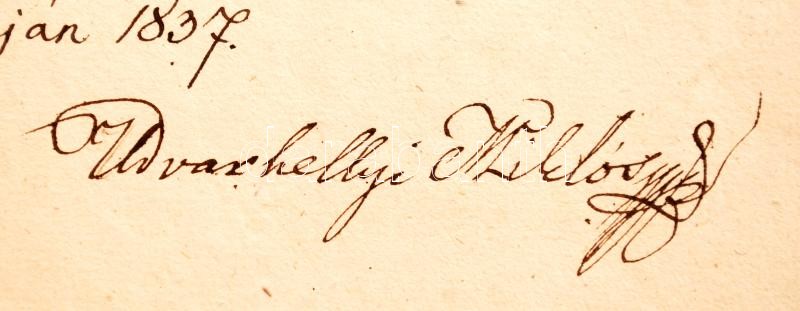 ján 1837.
Udvarhellyi Miklós